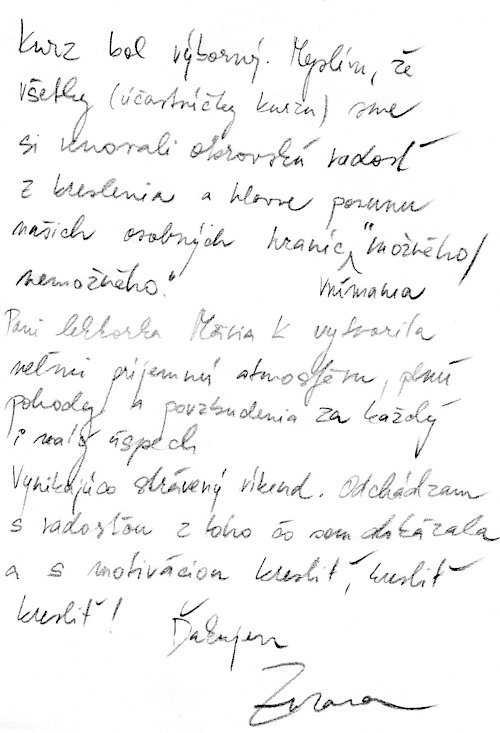 Kurz bol výborný. Myslím, že
všetky (účastníčky kurzu) sme
si venovali obrovskú radosť
z kreslenia a hlavne posunu
našich osobných hraníc "možného/
nemožného." vnímania
Pani lektorka Mária K vytvorila
veľmi príjemnú atmosféru, plnú
pohody a povzbudenia za každý
i malý úspech
Vynikajúco strávený víkend. Odchádzam
s radosťou z toho čo som dokázala
a s motiváciou kresliť, kresliť
kresliť!
Ďakujem
Zuzana